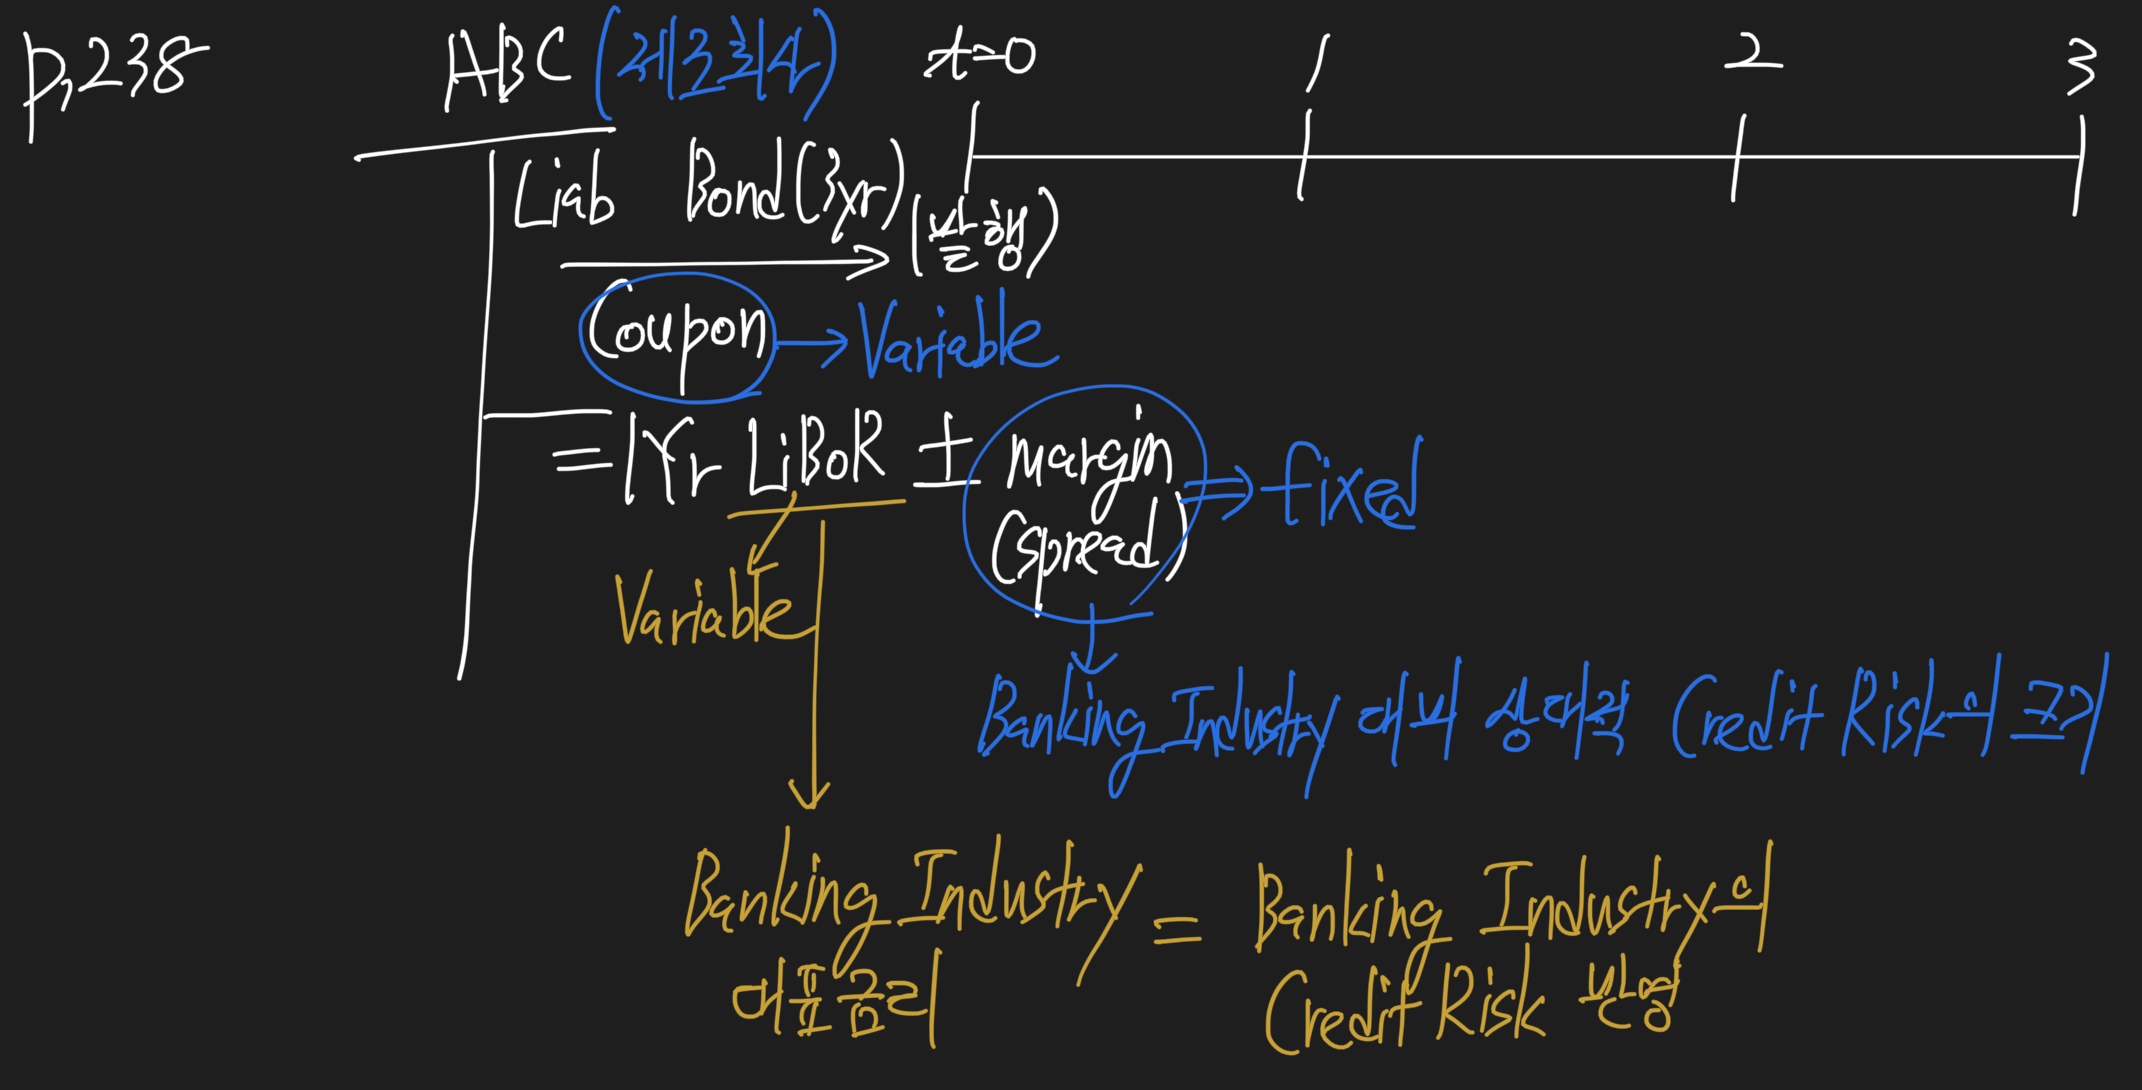 p.238 ABC (제조회사) t=0 1 2 3
Liab Bond(3yr) (발행)
Coupon → Variable
= 1Yr LiBoR ± margin ⇒ fixed
(spread)
Variable
Banking Industry 대비 상대적 Credit Risk의 크기
Banking Industry = Banking Industry의
대표금리 Credit Risk 반영